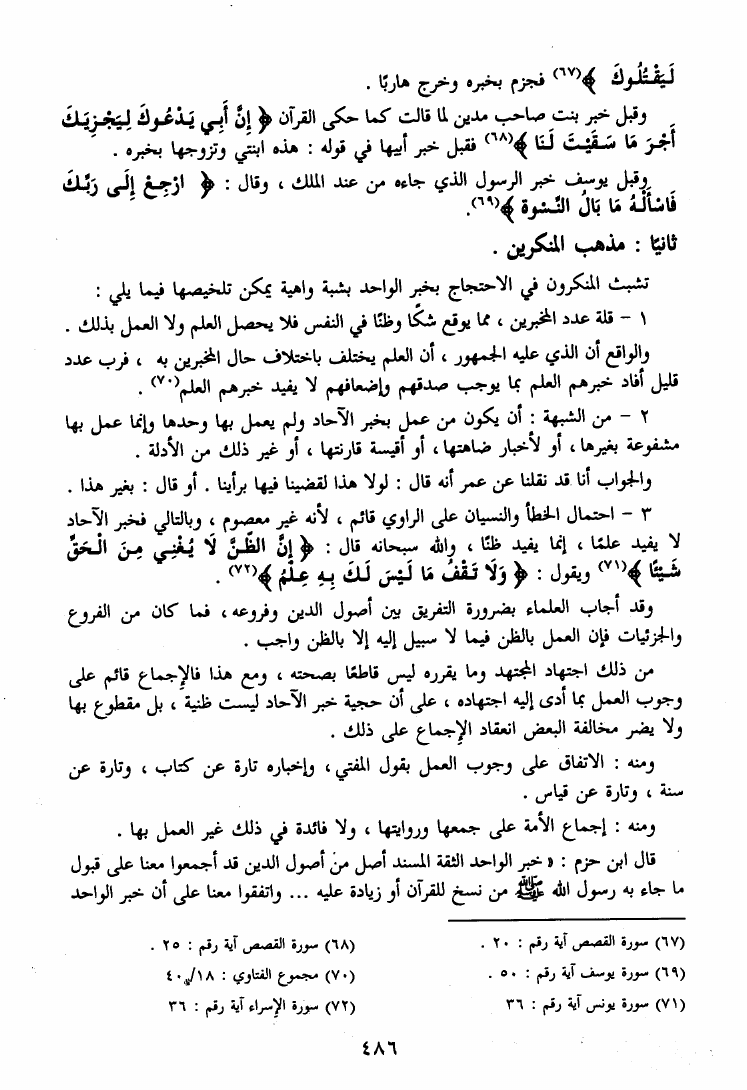 لَيَقْتُلُوكَ ﴾(٦٧) فجزم بخبره وخرج هاربًا .
وقبل خبر بنت صاحب مدين لما قالت كما حكى القرآن ﴿ إِنَّ أَبِي يَدْعُوكَ لِيَجْزِيَكَ
أَجْرَ مَا سَقَيْتَ لَنَا ﴾(٦٨) فقبل خبر أبيها في قوله : هذه ابنتي وتزوجها بخبره .
وقبل يوسف خبر الرسول الذي جاءه من عند الملك ، وقال : ﴿ ارْجِعْ إِلَى رَبِّكَ
فَاسْأَلْهُ مَا بَالُ النِّسْوة ﴾(٦٩).
ثانيًا : مذهب المنكرين .
تشبث المنكرون في الاحتجاج بخبر الواحد بشبة واهية يمكن تلخيصها فيما يلي :
١ – قلة عدد المخبرين ، مما يوقع شكًا وظنًا في النفس فلا يحصل العلم ولا العمل بذلك .
والواقع أن الذي عليه الجمهور ، أن العلم يختلف باختلاف حال المخبرين به ، فرب عدد
قليل أفاد خبرهم العلم بما يوجب صدقهم وإضعافهم لا يفيد خبرهم العلم(٧٠) .
٢ – من الشبهة : أن يكون من عمل بخبر الآحاد ولم يعمل بها وحدها وإنما عمل بها
مشفوعة بغيرها ، أو لأخبار ضاهتها ، أو أقيسة قارنتها ، أو غير ذلك من الأدلة .
والجواب أنا قد نقلنا عن عمر أنه قال : لولا هذا لقضينا فيها برأينا . أو قال : بغير هذا .
٣ – احتمال الخطأ والنسيان على الراوي قائم ، لأنه غير معصوم ، وبالتالي فخبر الآحاد
لا يفيد علمًا ، إنما يفيد ظنًا ، والله سبحانه قال : ﴿ إِنَّ الظَّنَّ لَا يُغْنِي مِنَ الْحَقِّ
شَيْئًا ﴾(٧١) ويقول : ﴿ وَلَا تَقْفُ مَا لَيْسَ لَكَ بِهِ عِلْمٌ ﴾(٧٢) .
وقد أجاب العلماء بضرورة التفريق بين أصول الدين وفروعه ، فما كان من الفروع
والجزئيات فإن العمل بالظن فيما لا سبيل إليه إلا بالظن واجب .
من ذلك اجتهاد المجتهد وما يقرره ليس قاطعًا بصحته ، ومع هذا فالإجماع قائم على
وجوب العمل بما أدى إليه اجتهاده ، على أن حجية خبر الآحاد ليست ظنية ، بل مقطوع بها
ولا يضر مخالفة البعض انعقاد الإجماع على ذلك .
ومنه : الاتفاق على وجوب العمل بقول المفتي ، وإخباره تارة عن كتاب ، وتارة عن
سنة ، وتارة عن قياس .
ومنه : إجماع الأمة على جمعها وروايتها ، ولا فائدة في ذلك غير العمل بها .
قال ابن حزم : « خبر الواحد الثقة المسند أصل من أصول الدين قد أجمعوا معنا على قبول
ما جاء به رسول الله ﷺ من نسخ للقرآن أو زيادة عليه ... واتفقوا معنا على أن خبر الواحد
(٦٧) سورة القصص آية رقم : ٢٠ . (٦٨) سورة القصص آية رقم : ٢٥ .
(٦٩) سورة يوسف آية رقم : ٥٠ . (٧٠) مجموع الفتاوي : ٤٠/١٨
(٧١) سورة يونس آية رقم : ٣٦ (٧٢) سورة الإسراء آية رقم : ٣٦
٤٨٦